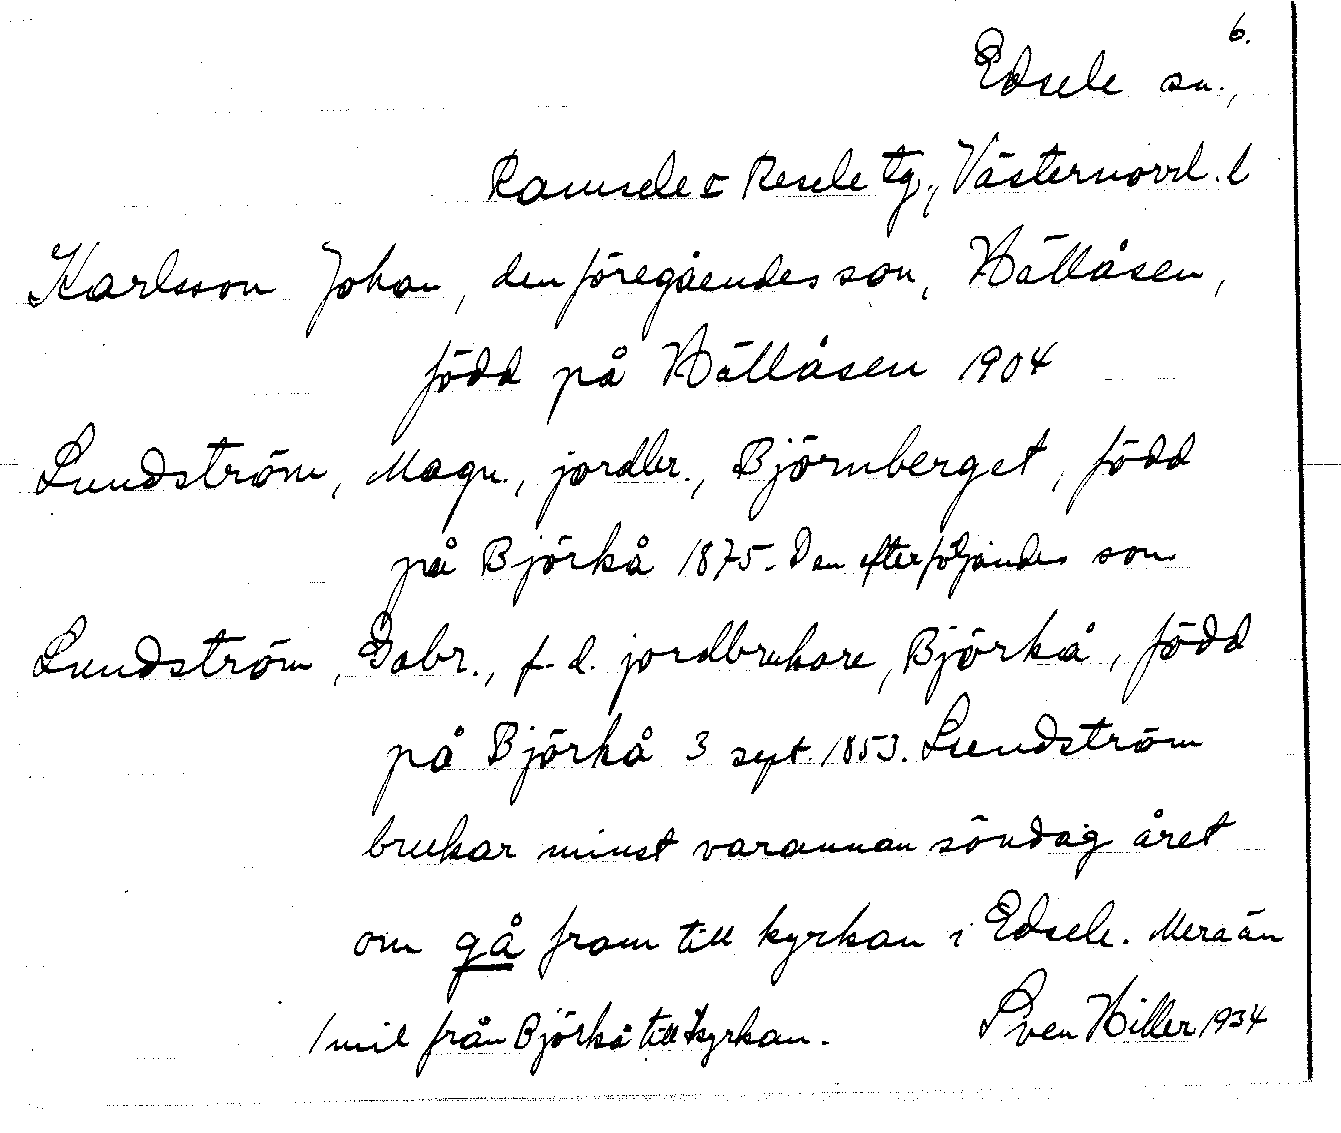 6.
Edsele sn.,
Ramsele o Resele tg., Västernorrl. l
Karlsson Johan, den föregåendes son, Hällåsen,
född på Hällåsen 1904
Lundström, Magn., jordbr., Björnberget, född
på Björkå 1875. Den efterföljandes son
Lundström, Gabr., f. d. jordbrukare, Björkå, född
på Björkå 3 sept. 1853. Lundström
brukar minst varannan söndag året
om gå fram till kyrkan i Edsele. Mera än
1 mil från Björkå till kyrkan. Sven Hiller 1934